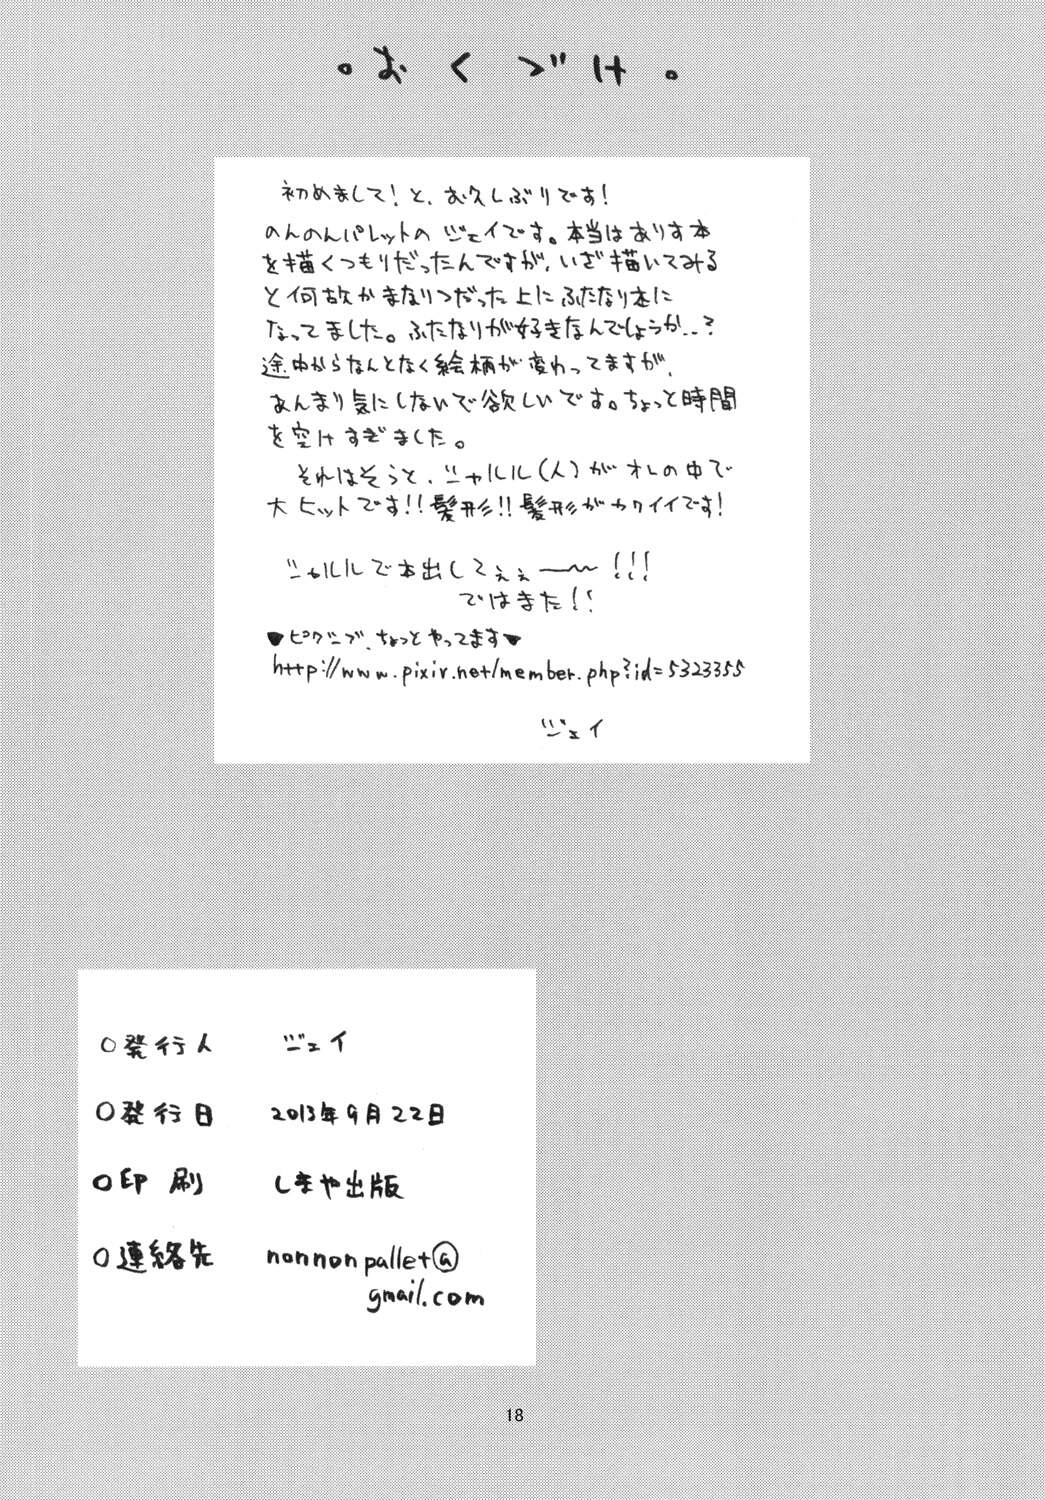 。おくづけ。
初めまして!と、お久しぶりです!
のんのんパレットの ジェイです。本当はありす本
を描くつもりだったんですが、いざ描いてみる
と何故かまなりつだった上にふたなり本に
なってました。ふたなりが好きなんでしょうか..?
途中からなんとなく絵柄が変わってますが、
あんまり気にしないで欲しいです。ちょっと時間
を空けすぎました。
それはそうと、シャルル(人)がオレの中で
大ヒットです!!髪形!!髪形がカワイイです!
シャルルで本出してぇぇ〜〜!!!
ではまた!!
♥ピクシブ、ちょっとやってます♥
http://www.pixiv.net/member.php?id=5323355
ジェイ
○発行人 ジェイ
○発行日 2013年9月22日
○印刷 しまや出版
○連絡先 nonnonpallet@
gmail.com
18